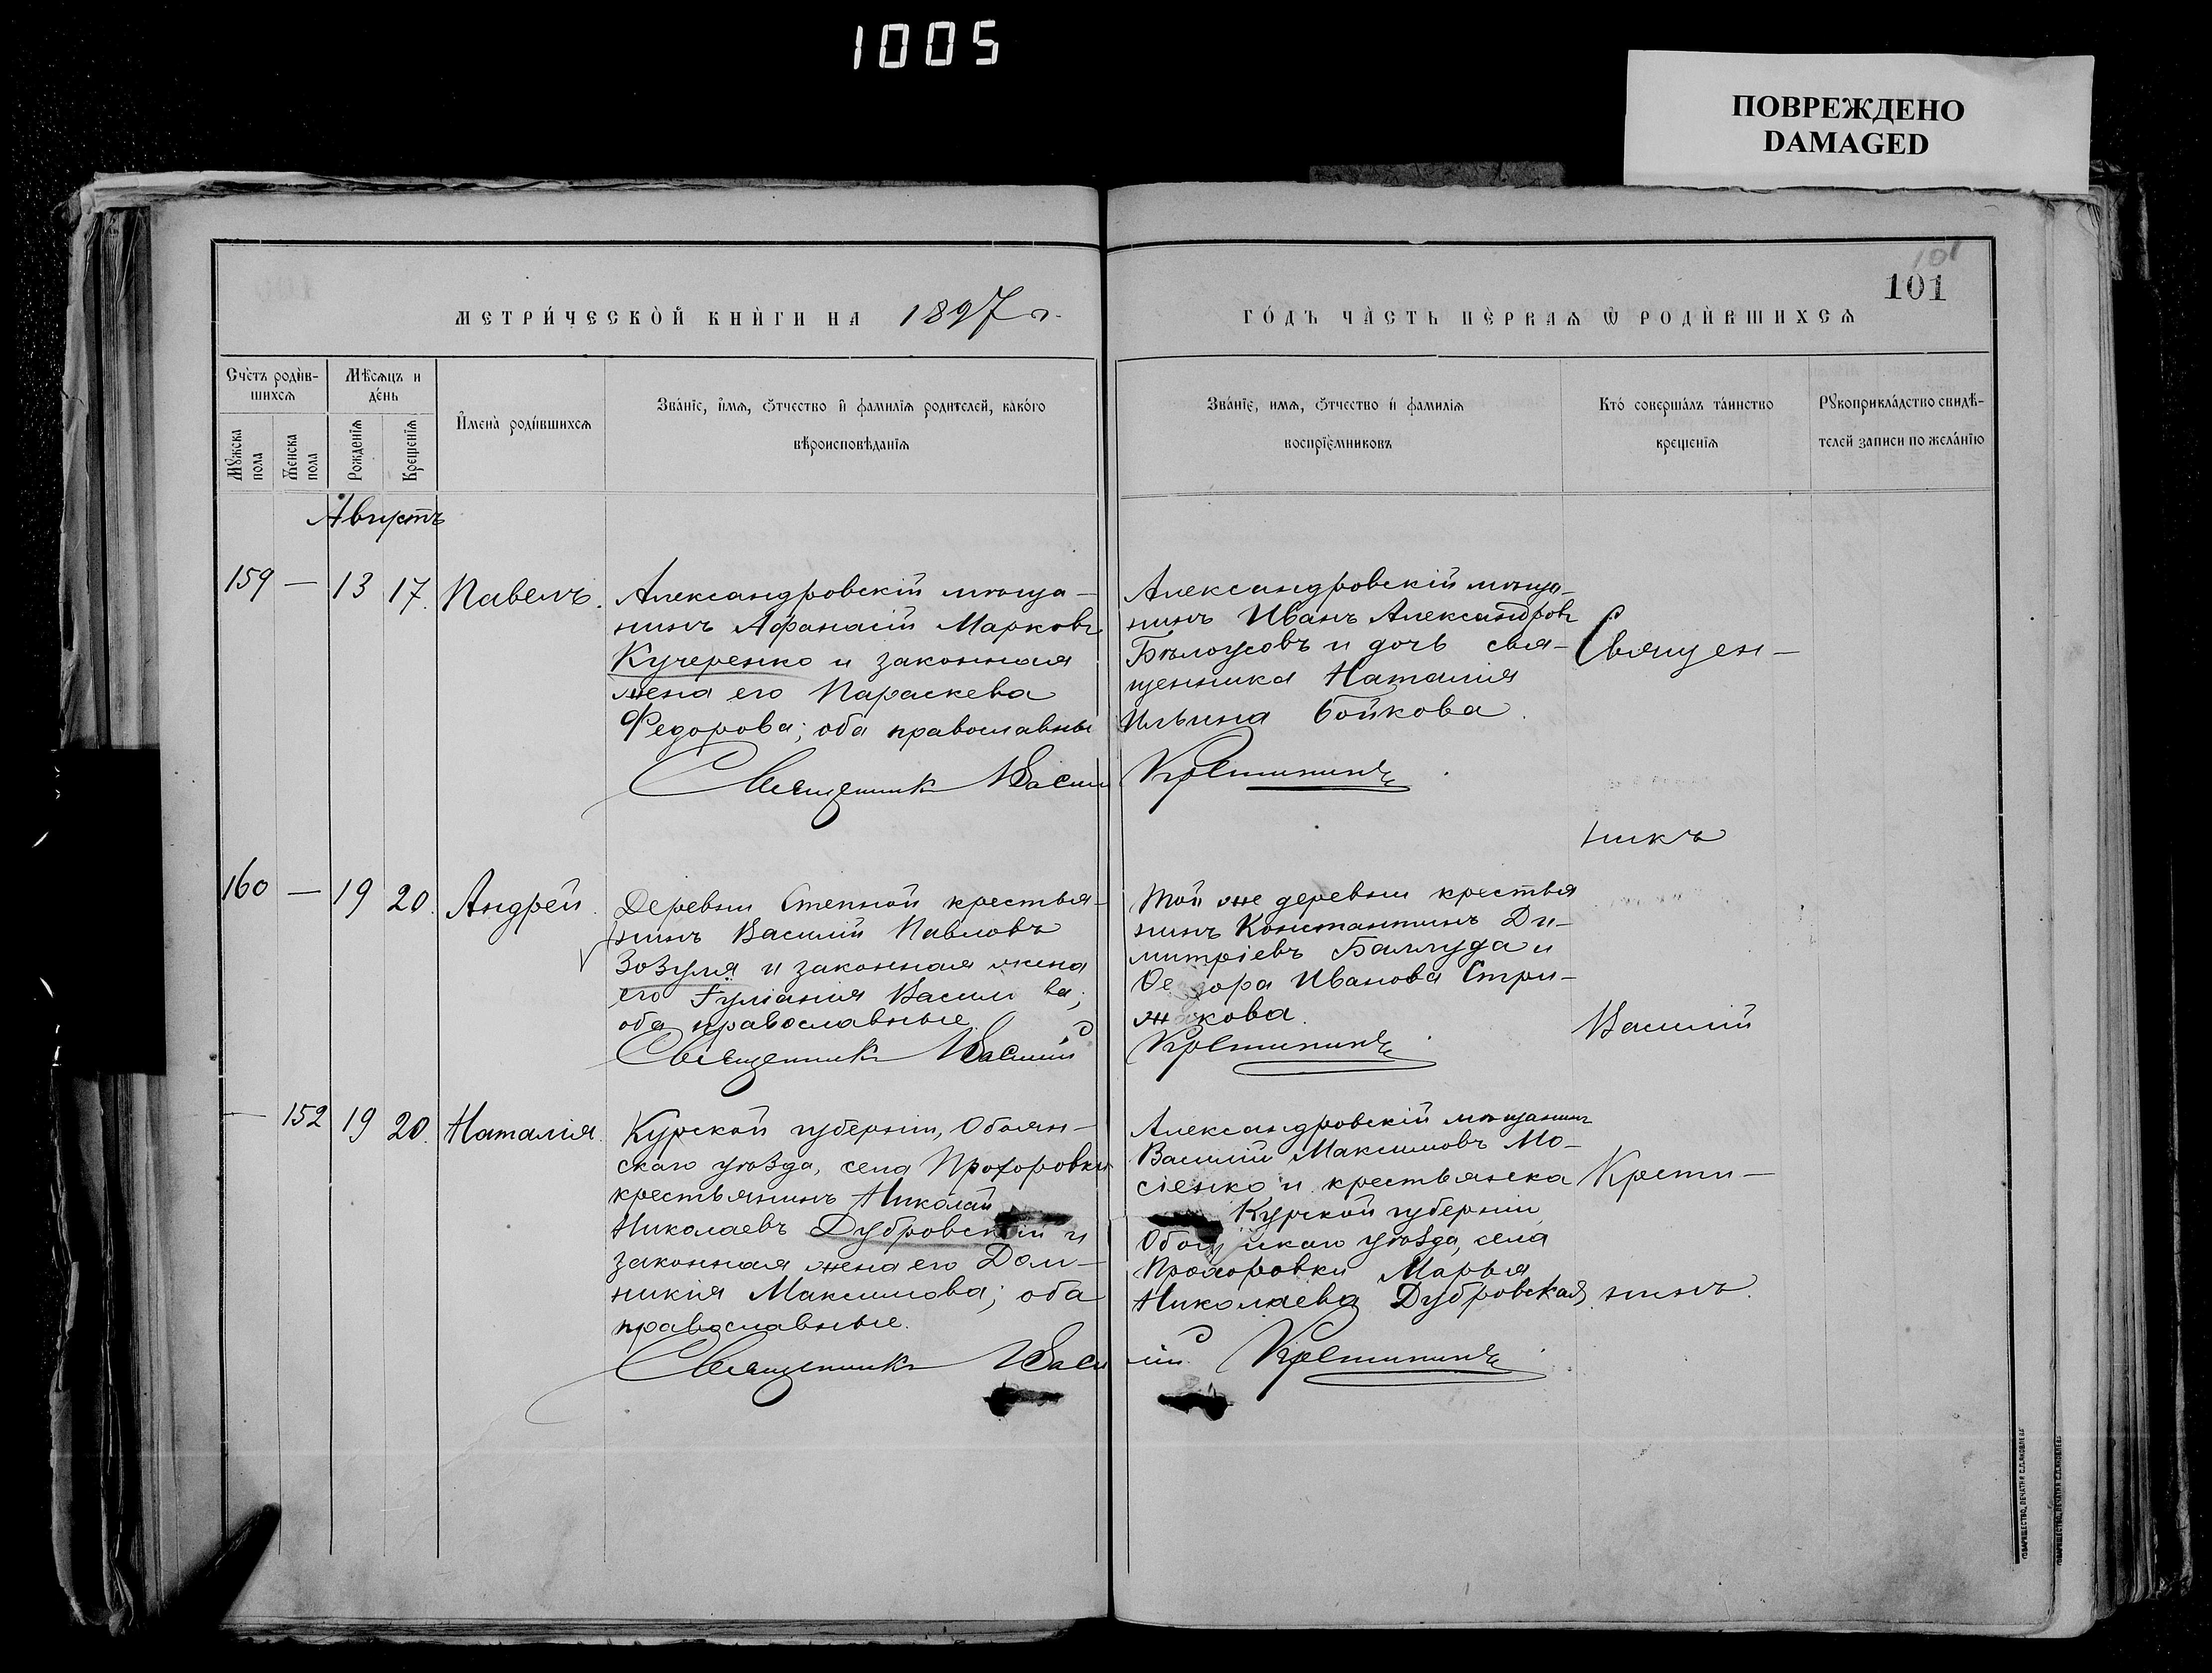 1005
ПОВРЕЖДЕНО
DAMAGED
101
101
МЕТРИ́ЧЕСКОЙ КНИ́ГИ НА 1897 г.
ГО́ДЪ ЧА́СТЬ ПЕ́РВАѦ Ѿ РОДИ́ВШИХСѦ
Сче́тъ роди́в-
шихсѧ
Мѣсѧцъ и
де́нь
Мꙋжска
пола
Женска
пола
Рожденїѧ
Крещенїѧ
И҆мена̀ роди́вшихсѧ
Зва́нїе, и҆́мѧ, ѻ҆́тчество и҆ фамилїѧ родителей, како́го
вѣроисповѣданїѧ
Зва́нїе, имѧ, ѻ҆́тчество и҆ фамилїѧ
воспрїе́мниковъ
Кто́ совершáлъ тáинство
крещенїѧ
Рꙋкоприкла́дство свидѣ-
телей записи по жела́нїю
Августъ
159 — 13 17. Павелъ.
Александровскій мѣща-
нинъ Афанасій Марковъ
Кучеренко и законная
жена его Параскева
Федорова; оба православны
Александровскій мѣща-
нинъ Иванъ Александровъ
Бѣлоусовъ и дочь свя-
щенника Наталія
Ильина Бойкова.
Священ-
Священникъ Васи Крестининъ
никъ
160 — 19 20. Андрей.
Деревни Степной крестья-
нинъ Василій Павловъ
Зозуля и законная жена
его Іуліанія Васил ва;
оба православные.
Той же деревни крестья
нинъ Константинъ Ди-
митріевъ Баллуда и
Ѳе дора Иванова Стри-
ж кова.
Василій
Священникъ Василій Крестининъ
— 152 19 20. Наталія.
Курской губерніи, Обоян-
скаго уѣзда, села Прохоровки
крестьянинъ Николай
Николаевъ Дубровскій и
законная жена его Дом-
никія Максимова; оба
православные.
Александровскій мѣщанинъ
Василій Максимовъ Мо-
сіенко и крестьянка
Курской губерніи,
Обоян скаго уѣзда, села
Прохоровки Марья
Николаева Дубровская.
Крести-
нинъ.
Священникъ Васи лій Крестининъ